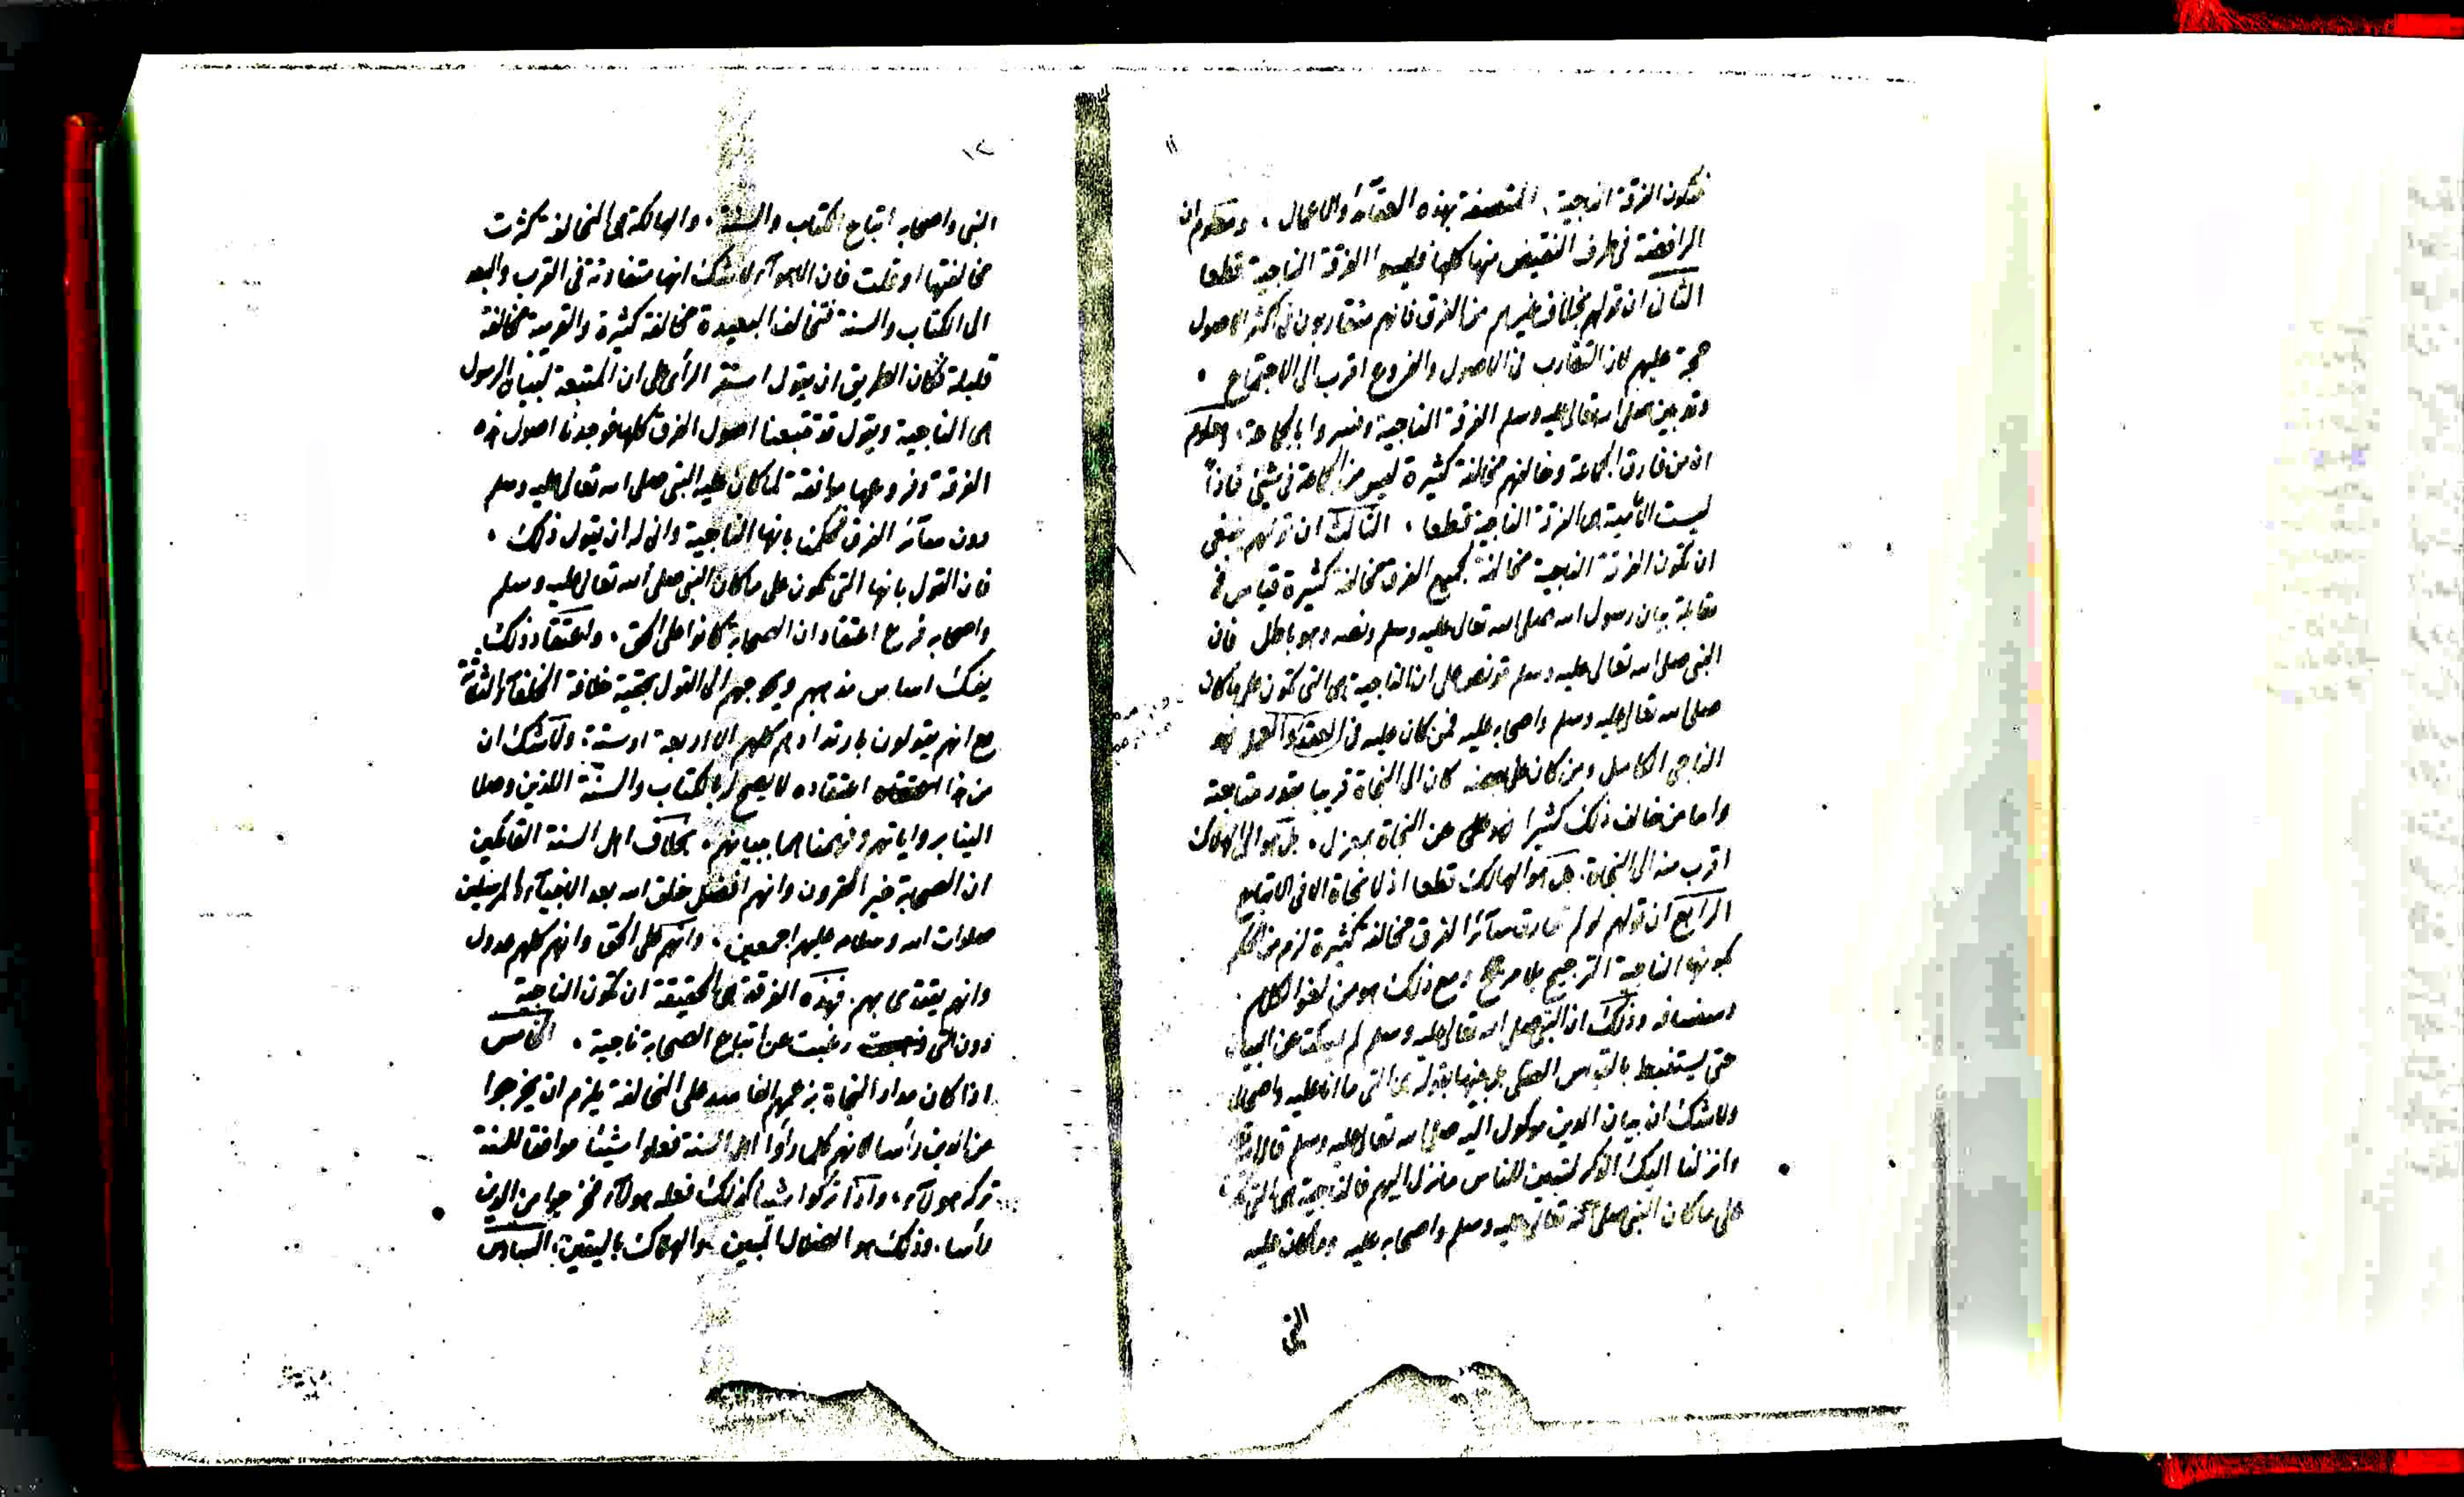 ١١
فتكون الفرقة الناجية المتصفة بهذه العقائد والاعمال . ومعلوم ان
الرافضة في طرف النقيض منها كلها فليسوا الفرقة الناجية قطعا
الثاني ان قولهم بخلاف غيرهم من الفرق فانهم متقاربون في اكثر الاصول
حجة عليهم لان التقارب في الاصول والفروع اقرب الى الاجتماع .
وقد بين صلى الله تعالى عليه وسلم الفرقة الناجية وفسروا بالجماعة . ومعلوم
ان من فارق الجماعة وخالفهم مخالفة كثيرة ليس من الجماعة في شيئ فاذاً
ليست الامامية هي الفرقة الناجية قطعا . الثالث ان قولهم ينبغي
ان تكون الفرقة الناجية مخالفة لجميع الفرق مخالفة كثيرة قياس في
مقابلة بيان رسول الله صلى الله تعالى عليه وسلم ونصه وهو باطل فان
النبي صلى الله تعالى عليه وسلم قد نص على ان الناجية هي التي تكون على ما كان
صلى الله تعالى عليه وسلم واصحابه عليه فمن كان عليه في العقد والعمل فهو
الناجي الكامل ومن كان على بعضه كان الى النجاة قريبا بقدر متابعته
واما من خالف ذلك كثيرا فهو عن النجاة بمعزل . بل هو الى الهلاك
اقرب منه الى النجاة . بل هو الهالك قطعا اذ لا نجاة الا في الاتباع
الرابع ان قولهم لو لم تفارق سائر الفرق مخالفة كثيرة لزم من الحكم
بكونها الناجية الترجيح بلا مرجح ومع ذلك هو من لغو الكلام
وذلك ان النبي صلى الله تعالى عليه وسلم لم يسكت عن البيان
حتى يستنبط بالقياس العقلي بل بينها بقوله هي التي ما انا عليه واصحابي
ولا شك ان بيان الدين موكول اليه صلى الله تعالى عليه وسلم قال الله تعالى
وانزلنا اليك الذكر لتبين للناس ما نزل اليهم فالناجية هي التي
على ما كان النبي صلى الله تعالى عليه وسلم واصحابه عليه وما كان عليه
النبي
١٢
النبي واصحابه اتباع الكتاب والسنة . والهالكة هي المخالفة كثرت
مخالفتها او قلت فان الاهوآء لا شك انها متفاوتة في القرب والبعد
الى الكتاب والسنة فتخالف البعيدة مخالفة كثيرة والقريبة مخالفة
قليلة فكان الطريق ان يقول استقر الرأي على ان المتبعة لبيان الرسول
هي الناجية ويقول قد تتبعنا اصول الفرق كلها فوجدنا اصول هذه
الفرقة وفروعها موافقة لما كان عليه النبي صلى الله تعالى عليه وسلم
دون سآئر الفرق فحكمنا بانها الناجية وانى له ان يقول ذلك .
فان القول بانها التي تكون على ما كان النبي صلى الله تعالى عليه وسلم
واصحابه فرع اعتقاد ان الصحابة كانوا على الحق . واعتقاد ذلك
يفك اساس مذهبهم ويحوجهم الى القول بحقية خلافة الخلفآء الثلاثة
مع انهم يقولون بارتدادهم كلهم الا اربعة او ستة . ولا شك ان
من هذا اعتقاده لا يصح له الكتاب والسنة اللذين وصلا
الينا برواياتهم وفهمناهما ببيانهم . بخلاف اهل السنة القائلين
ان الصحابة خير القرون وانهم افضل خلق الله بعد الانبيآء والمرسلين
صلوات الله وسلامه عليهم اجمعين . وانهم على الحق وانهم كلهم عدول
وانهم يقتدى بهم . فهذه الفرقة هي الحقيقة ان تكون الناجية
دون التي رغبت عن اتباع الصحابة ناجية . الخامس
اذا كان مدار النجاة بزعمهم الفاسد على المخالفة يلزم ان يخرجوا
عن الدين رأسا لانهم كلما رأوا اهل السنة فعلوا شيئا موافقا للسنة
تركه هولآء . واذا تركوا شيئا كذلك فعله هولآء فخرجوا من الدين
رأسا . وذلك هو الضلال المبين . والهلاك باليقين . السادس